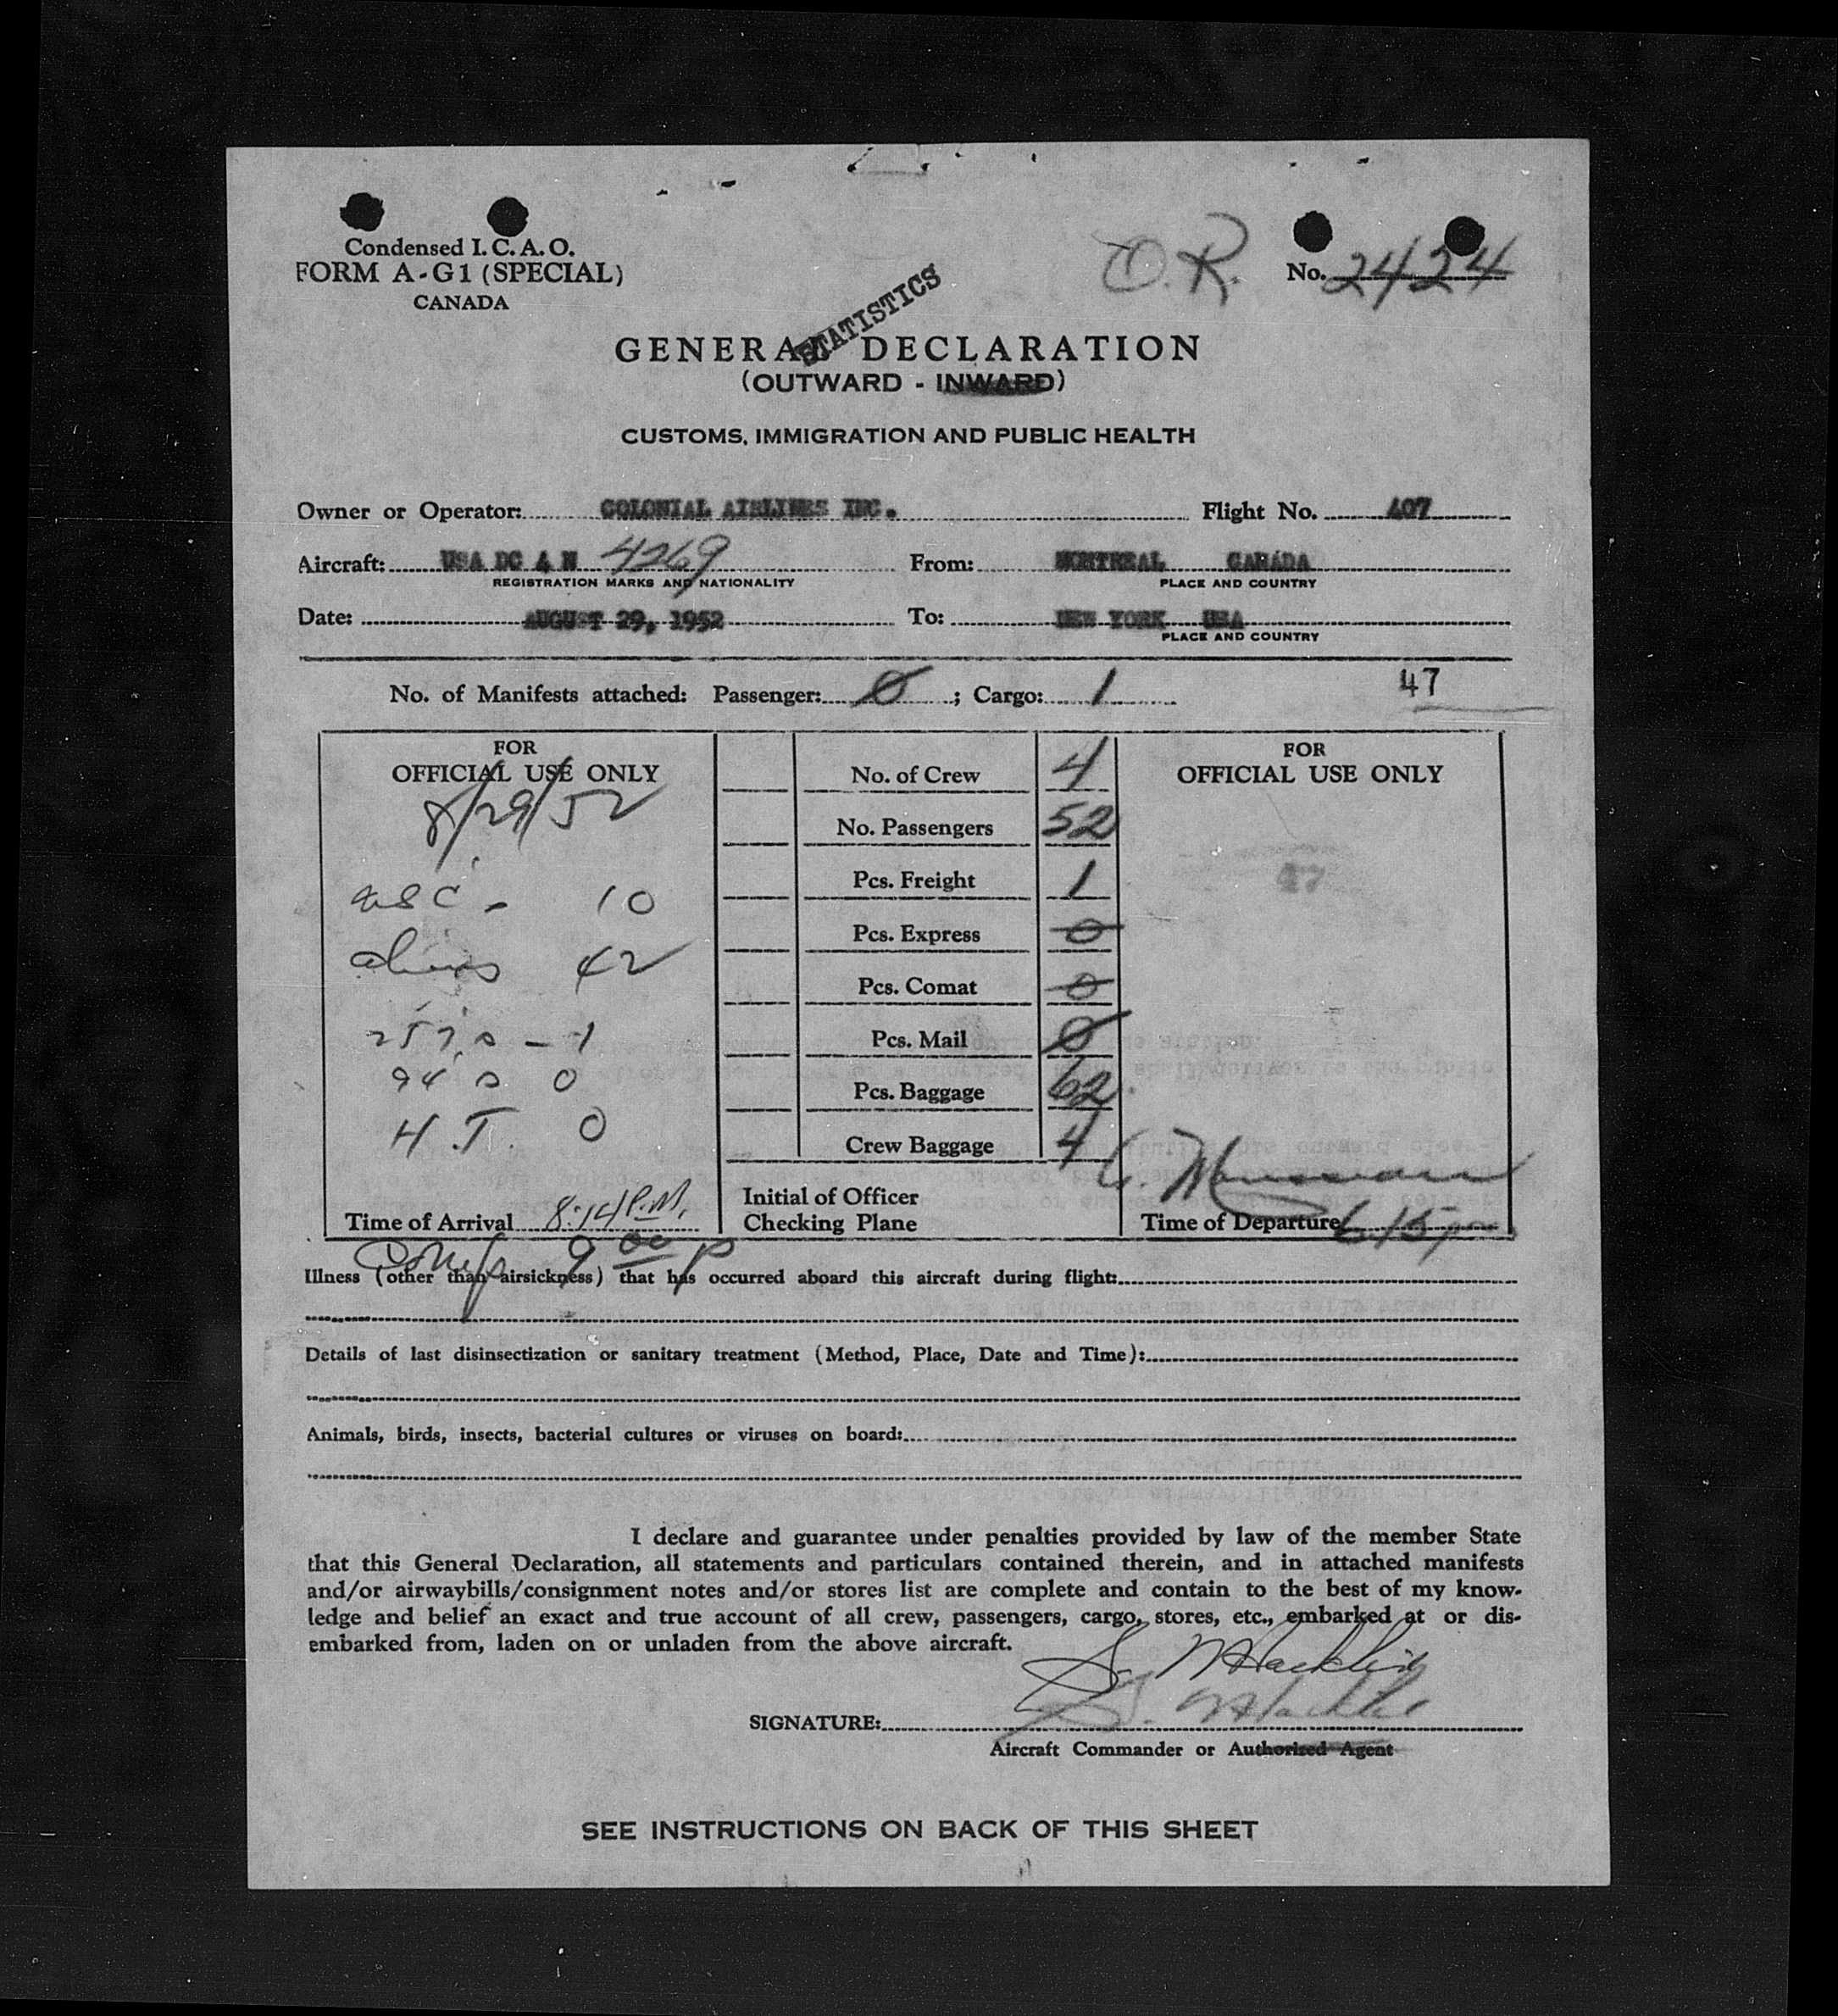 Condensed I.C.A.O.
FORM A-G1 (SPECIAL)
CANADA
O.R.
No. 2424
STATISTICS
GENERAL DECLARATION
(OUTWARD - INWARD)
CUSTOMS, IMMIGRATION AND PUBLIC HEALTH
Owner or Operator: COLONIAL AIRLINES INC. Flight No. 407
Aircraft: USA DC 4 N 4269 From: MONTREAL CANADA
REGISTRATION MARKS AND NATIONALITY PLACE AND COUNTRY
Date: AUGUST 29, 1952 To: NEW YORK USA
PLACE AND COUNTRY
No. of Manifests attached: Passenger: 0 ; Cargo: 1 47
FOR
OFFICIAL USE ONLY
8/29/52
USC - 10
aliens 42
257's - 1
94's 0
H.T. 0
Time of Arrival 8:14 P.M.
No. of Crew 4
No. Passengers 52
Pcs. Freight 1
Pcs. Express 0
Pcs. Comat 0
Pcs. Mail 0
Pcs. Baggage 62
Crew Baggage 4
Initial of Officer
Checking Plane
FOR
OFFICIAL USE ONLY
47
Time of Departure 6.15 pm
9 00 p
Illness (other than airsickness) that has occurred aboard this aircraft during flight:
Details of last disinsectization or sanitary treatment (Method, Place, Date and Time):
Animals, birds, insects, bacterial cultures or viruses on board:
I declare and guarantee under penalties provided by law of the member State
that this General Declaration, all statements and particulars contained therein, and in attached manifests
and/or airwaybills/consignment notes and/or stores list are complete and contain to the best of my know-
ledge and belief an exact and true account of all crew, passengers, cargo, stores, etc., embarked at or dis-
embarked from, laden on or unladen from the above aircraft.
SIGNATURE:
Aircraft Commander or Authorized Agent
SEE INSTRUCTIONS ON BACK OF THIS SHEET